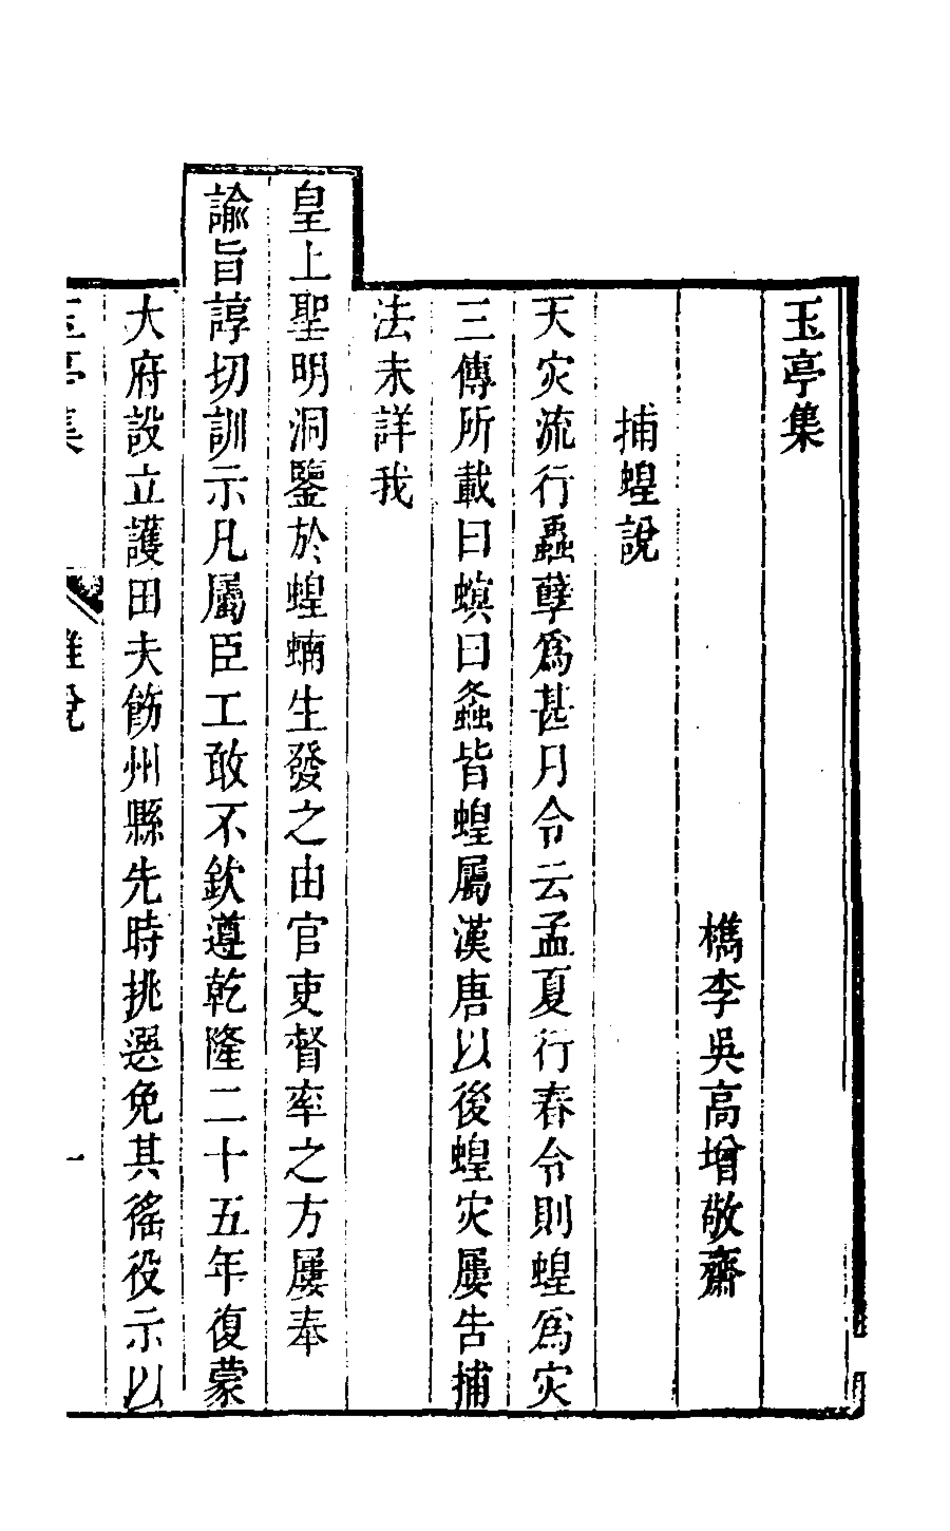 玉亭集
檇李吳高增敬齋
捕蝗說
天灾流行蟲孽為甚月令云孟夏行春令則蝗為灾
三傳所載曰螟曰螽皆蝗屬漢唐以後蝗灾屢告捕
法未詳我
皇上聖明洞鑒於蝗蝻生發之由官吏督率之方屢奉
諭旨諄切訓示凡屬臣工敢不欽遵乾隆二十五年復蒙
大府設立護田夫飭州縣先時挑選免其徭役示以
玉亭集
雜說
一